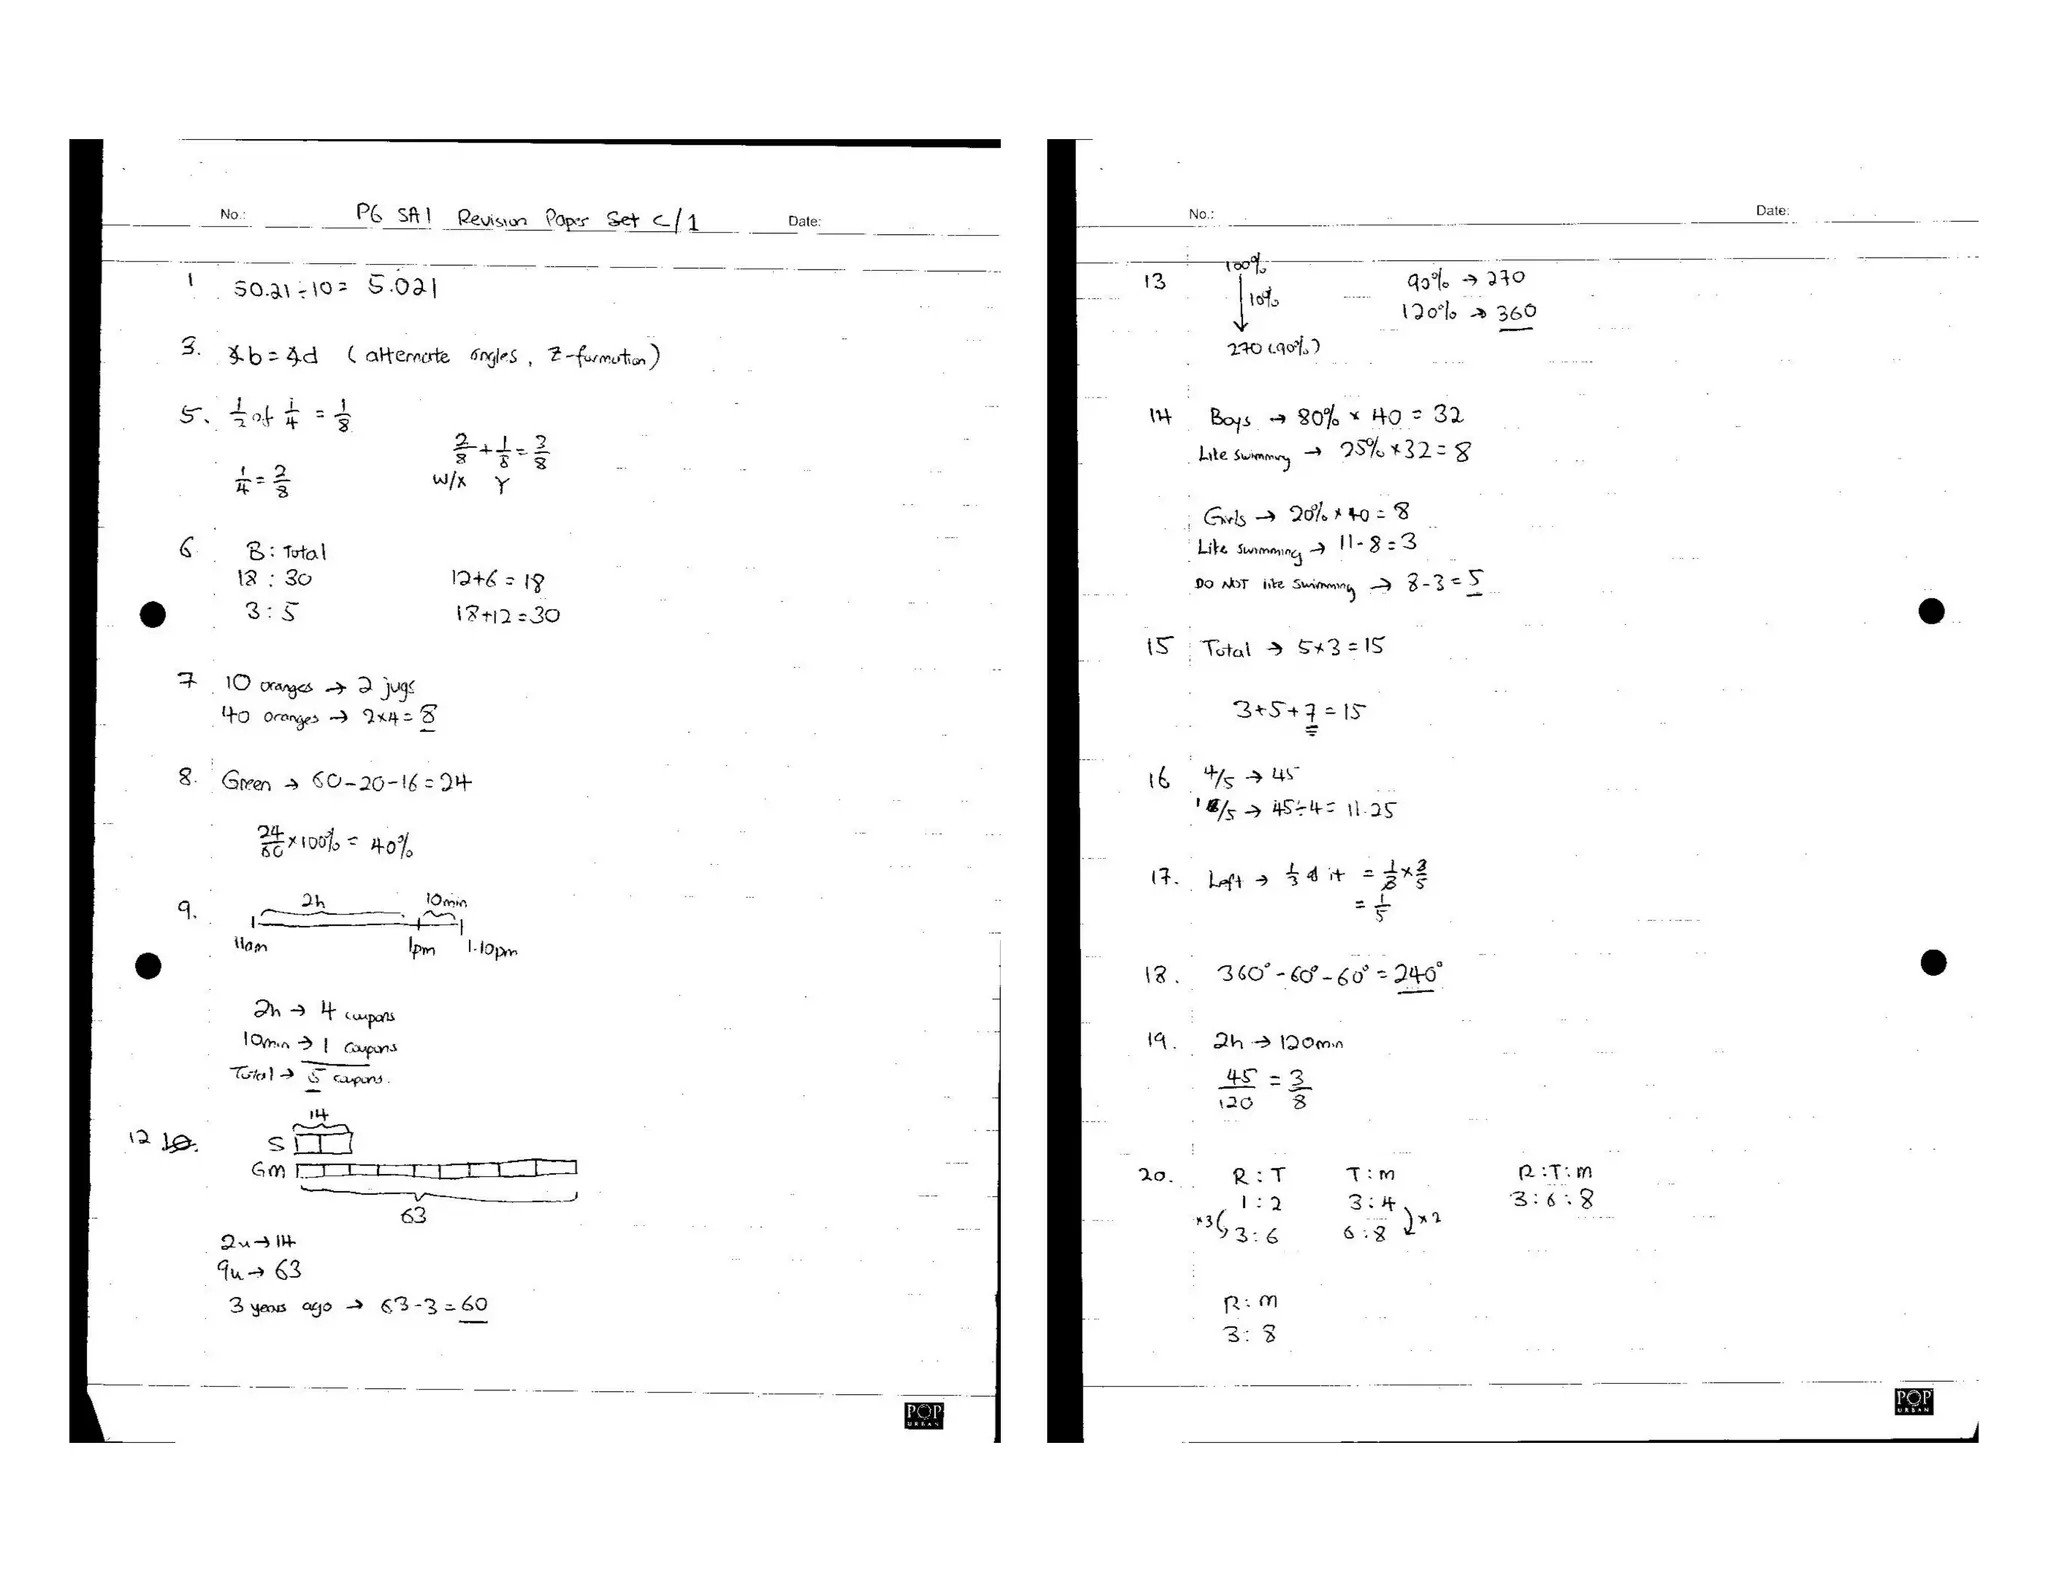 No.: P6 SA1 Revision Paper Set C/1 Date:
1 50.21 ÷ 10 = 5.021
3. ∡b = ∡d ( alternate angles , Z-formation)
5. 1/2 of 1/4 = 1/8
2/8 + 1/8 = 3/8
1/4 = 2/8
W/X Y
6. B : Total
18 : 30 12+6 = 18
3 : 5 18+12 = 30
7 10 oranges → 2 jugs
40 oranges → 2×4 = 8
8. Green → 60-20-16 = 24
24/60 × 100% = 40%
9. 2h 10min
11am 1pm 1.10pm
2h → 4 coupons
10min → 1 coupons
Total → 5 coupons.
14
12 10. S
Gm
63
2u → 14
9u → 63
3 years ago → 63-3 = 60
POP
URBAN
No.: Date:
13 100% 90% → 270
10% 120% → 360
270 (90%)
14 Boys → 80% × 40 = 32
Like swimming → 25% × 32 = 8
Girls → 20% × 40 = 8
Like swimming → 11-8 = 3
DO NOT like swimming → 8-3 = 5
15 Total → 5×3 = 15
3+5+7 = 15
16 4/5 → 45
1/5 → 45÷4 = 11.25
17. Left → 1/3 of it = 1/3 × 3/5
= 1/5
18. 360° - 60° - 60° = 240°
19. 2h → 120min
45/120 = 3/8
20. R : T T : m R : T : m
1 : 2 3 : 4 3 : 6 : 8
×3 3 : 6 6 : 8 ×2
R : m
3 : 8
POP
URBAN